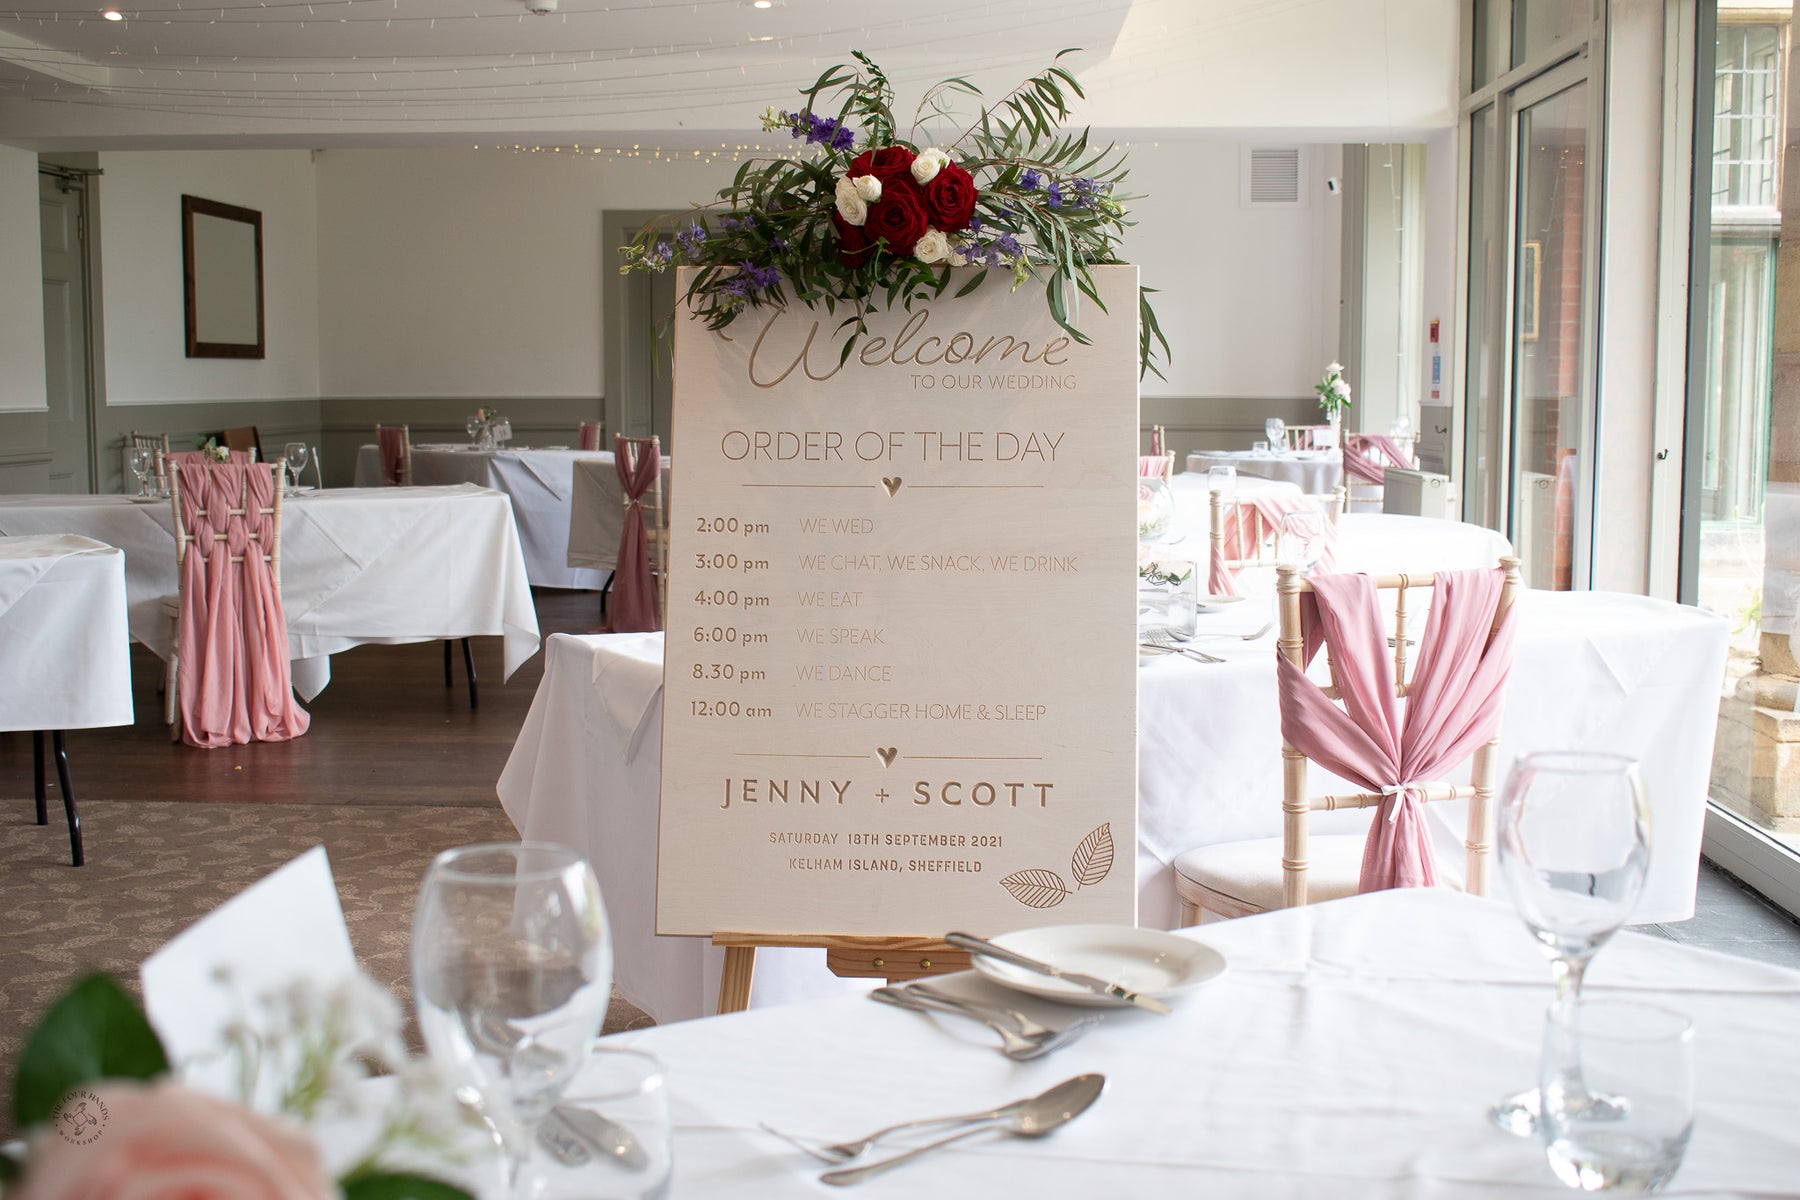 Welcome
TO OUR WEDDING
ORDER OF THE DAY
2:00 pm WE WED
3:00 pm WE CHAT, WE SNACK, WE DRINK
4:00 pm WE EAT
6:00 pm WE SPEAK
8.30 pm WE DANCE
12:00 am WE STAGGER HOME & SLEEP
JENNY + SCOTT
SATURDAY 18TH SEPTEMBER 2021
KELHAM ISLAND, SHEFFIELD
THE FOUR HANDS
WORKSHOP